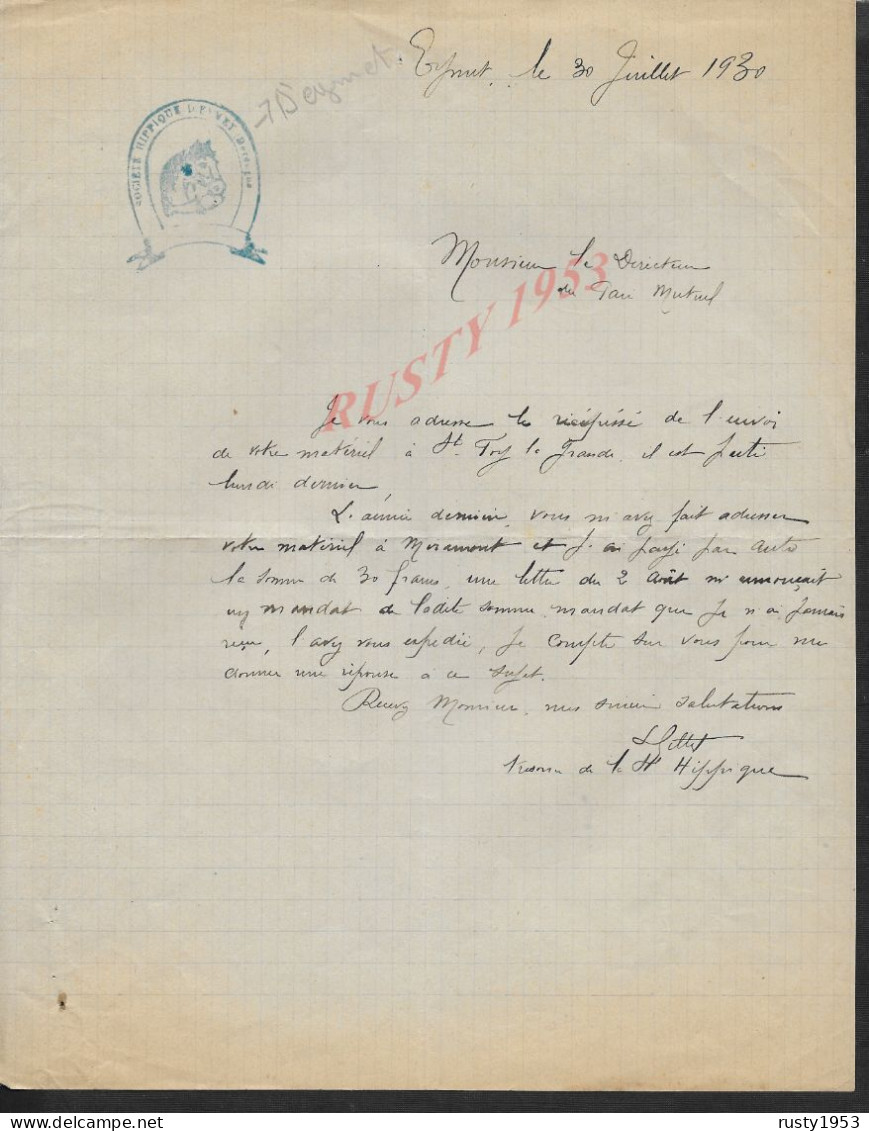 Eymet, le 30 Juillet 1930
→ D'eymet
SOCIÉTÉ HIPPIQUE D'EYMET Dordogne
Monsieur le Directeur
du Pari Mutuel
RUSTY 1953
Je vous adresse le récépissé de l'envoi
de votre matériel à St. Foy la Grande, il est parti
lundi dernier
L'année dernière, vous m'avez fait adresser
votre matériel à Miramont et j'ai payé par auto
la somme de 30 francs, une lettre du 2 Août m'annonçait
un mandat de ladite somme, mandat que je n'ai jamais
reçu, l'avez vous expédié, je compte sur vous pour me
donner une réponse à ce sujet.
Recevez Monsieur, mes sincères salutations
Gillet
trésorier de la Sté Hippique
delcampe.net
rusty1953